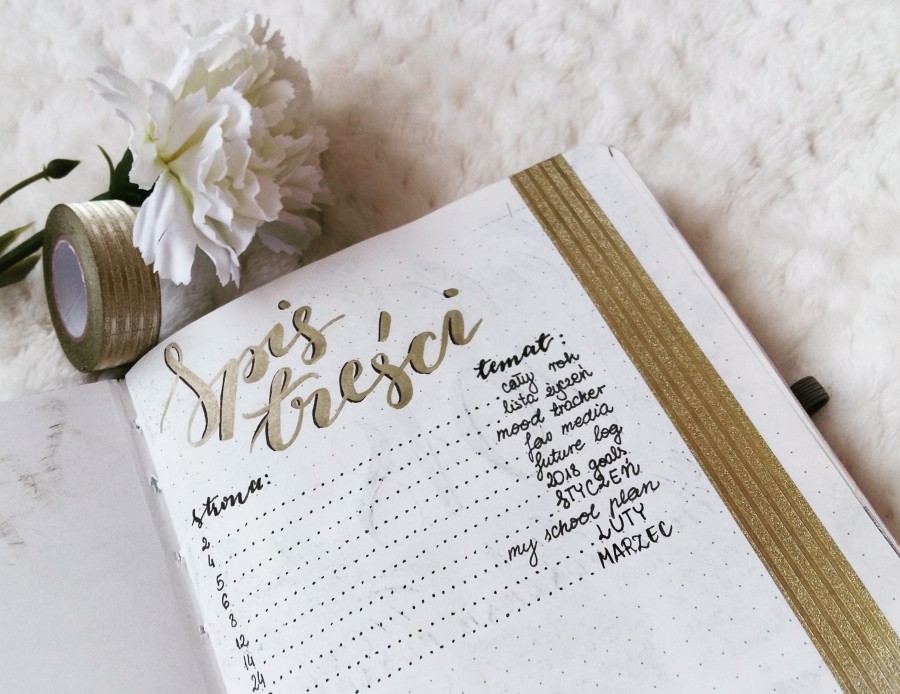 Spis
treści
strona:
2
4
5
6
8
12
14
24
temat:
cały rok
lista życzeń
mood tracker
fav media
future log
2018 goals
STYCZEŃ
my school plan
LUTY
MARZEC